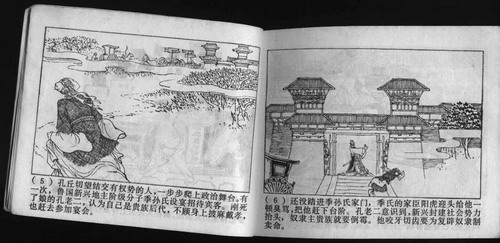 （5）孔丘切望结交有权势的人，一步步爬上政治舞台。有
一次，鲁国新兴地主阶级分子季孙氏设宴招待宾客。刚死
了娘的孔老二，认为自己是贵族后代，不顾身上披麻戴孝，
也赶去参加宴会。
（6）还没踏进季孙氏家门，季氏的家臣阳虎迎头给他一
顿臭骂，把他赶下台阶。孔老二意识到，新兴封建社会势力
抬头，奴隶主贵族就要倒霉。他咬牙切齿要为复辟奴隶制
卖命。